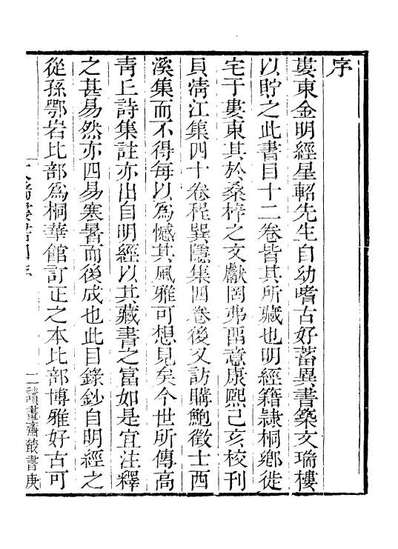 序
婁東金明經星軺先生自幼嗜古好蓄異書築文瑞樓
以貯之此書目十二卷皆其所藏也明經籍隷桐鄉徙
宅于婁東其於桑梓之文獻罔弗畱意康熙己亥校刊
貝清江集四十卷程巽隱集四卷後又訪購鮑徵士西
溪集而不得每以爲憾其風雅可想見矣今世所傳高
青丘詩集註亦出自明經以其藏書之富如是宜注釋
之甚易然亦四易寒暑而後成也此目錄鈔自明經之
從孫鄂岩比部爲桐華館訂正之本比部博雅好古可
文瑞樓書目序
一讀畫齋叢書庚